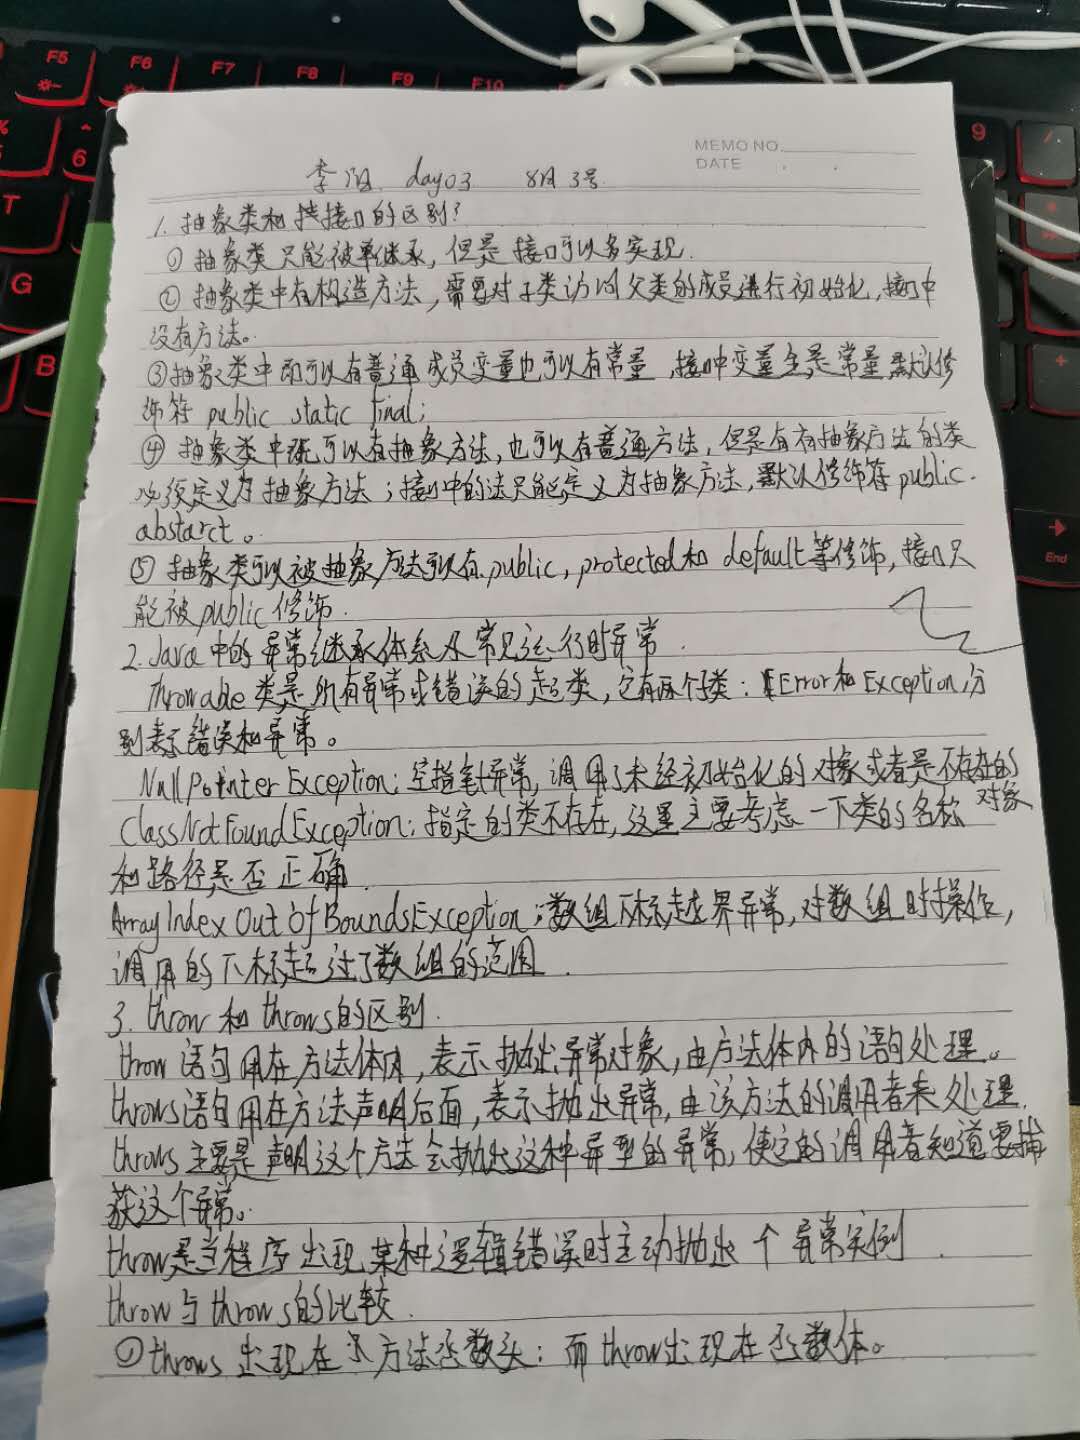 F5 F6 F7 F8 F9 F10
MEMO NO.
DATE
李 day03 8月3号
1. 抽象类和接口的区别?
① 抽象类只能被单继承, 但是接口可以多实现.
② 抽象类中有构造方法, 需要对子类访问父类的成员进行初始化, 接口中
没有方法。
③ 抽象类中即可以有普通成员变量也可以有常量, 接口中变量全是常量,默认修
饰符 public static final;
④ 抽象类中既可以有抽象方法, 也可以有普通方法, 但是有有抽象方法的类
必须定义为抽象方法; 接口中的法只能定义为抽象方法, 默认修饰符public.
abstarct。
⑤ 抽象类可以被抽象方法可以有.public, protected和 default等修饰, 接口只
能被public修饰.
2. Java中的异常继承体系及常见运行时异常.
Throwable 类是所有异常或错误的超类, 它有两个子类: Error和Exception,分
别表示错误和异常。
NullPointerException: 空指针异常, 调用了未经初始化的对象或者是不存在的
对象
ClassNotFoundException: 指定的类不存在, 这里主要考虑一下类的名称
和路径是否正确.
ArrayIndexOutOfBoundsException: 数组下标越界异常, 对数组时操作,
调用的下标超过了数组的范围.
3. throw 和 throws的区别.
throw 语句用在方法体内, 表示抛出异常对象, 由方法体内的语句处理。
throws语句用在方法声明后面, 表示抛出异常, 由该方法的调用者来处理.
throws 主要是声明这个方法会抛出这种异型的异常, 使它的调用者知道要捕
获这个异常。
throw是当程序出现某种逻辑错误时主动抛出 个 异常实例.
throw与throws的比较.
① throws 出现在 方法函数头: 而 throw出现在函数体。
6
T
G
B
9
End